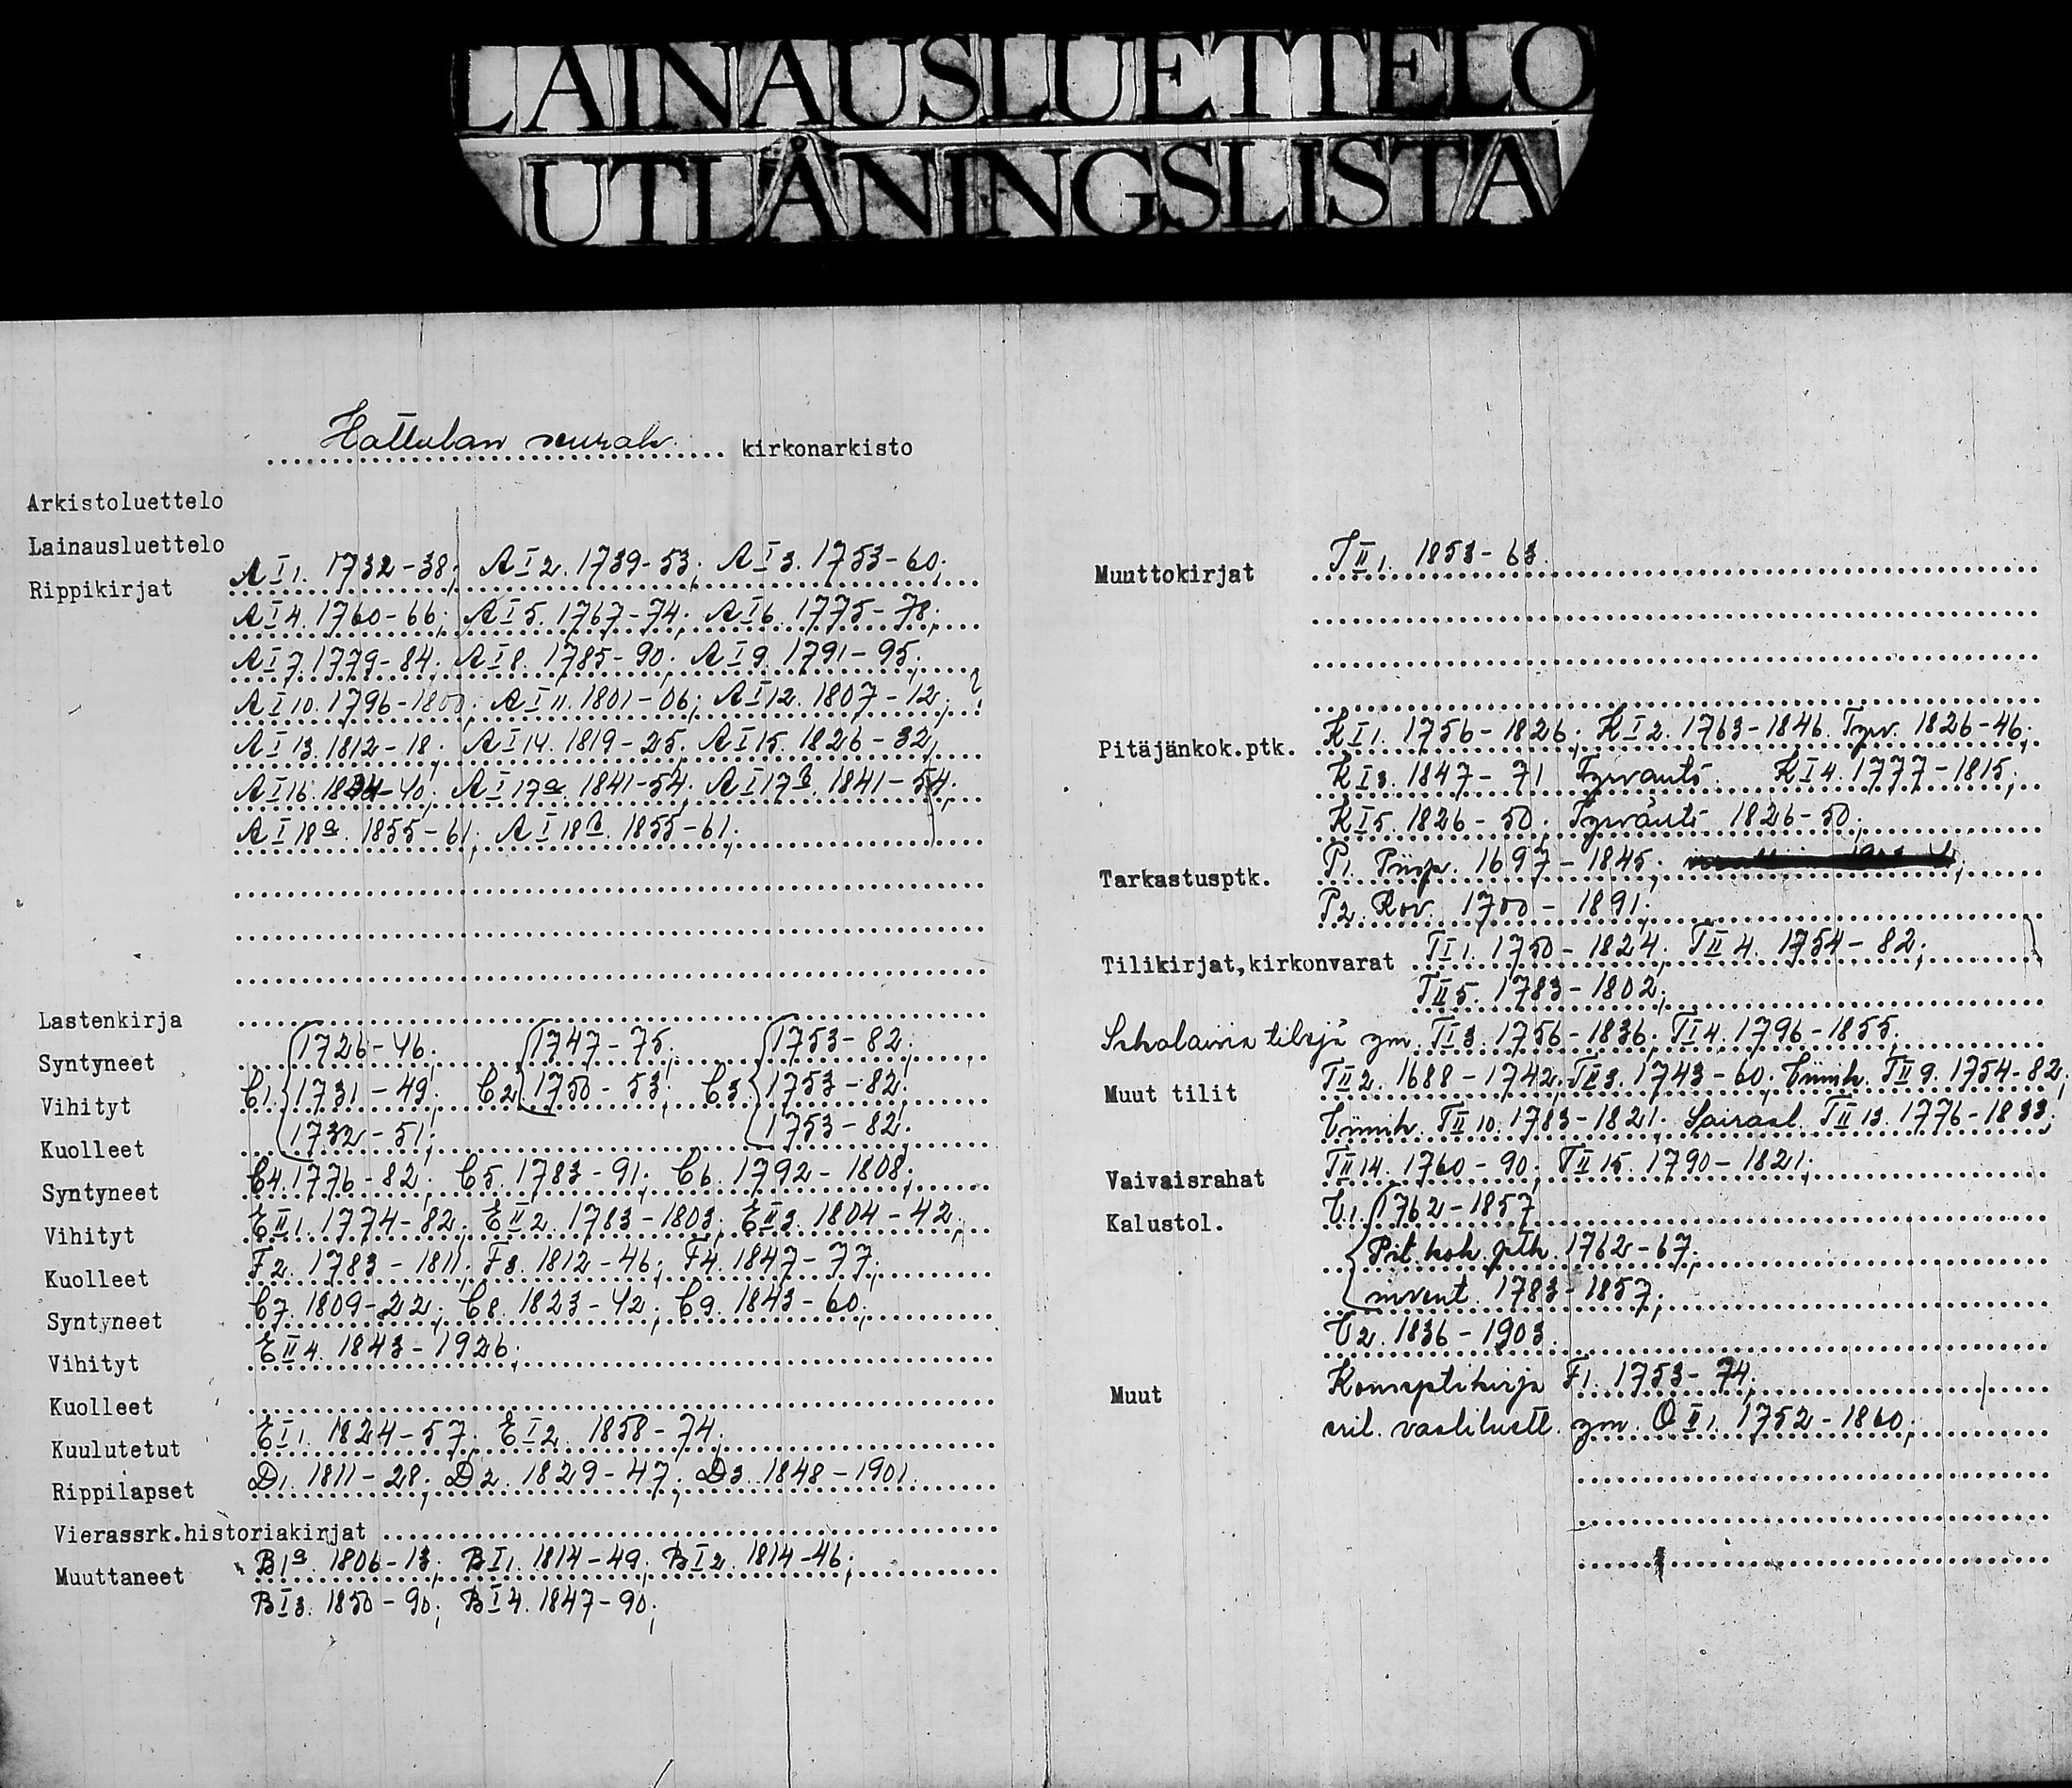 LAINAUSLUETTELO
UTLÅNINGSLISTA
Hattulan seurak. kirkonarkisto
Arkistoluettelo
Lainausluettelo
Rippikirjat A I 1. 1732-38; A I 2. 1739-53; A I 3. 1753-60;
A I 4. 1760-66; A I 5. 1767-74; A I 6. 1775-78;
A I 7. 1779-84; A I 8. 1785-90; A I 9. 1791-95;
A I 10. 1796-1800; A I 11. 1801-06; A I 12. 1807-12;
A I 13. 1812-18; A I 14. 1819-25; A I 15. 1826-32;
A I 16. 1834-40; A I 17a. 1841-54; A I 17b. 1841-54;
A I 18a. 1855-61; A I 18b. 1855-61;
Lastenkirja
Syntyneet 1726-46; 1747-75; 1753-82;
Vihityt C1. 1731-49; C2. 1750-53; C3. 1753-82;
Kuolleet 1732-51; 1753-82;
Syntyneet C4. 1776-82; C5. 1783-91; C6. 1792-1808;
Vihityt E II 1. 1774-82; E II 2. 1783-1803; E II 3. 1804-42;
Kuolleet F2. 1783-1811; F3. 1812-46; F4. 1847-77;
Syntyneet C7. 1809-22; C8. 1823-42; C9. 1843-60;
Vihityt E II 4. 1843-1926;
Kuolleet
Kuulutetut E I 1. 1824-57; E I 2. 1858-74;
Rippilapset D1. 1811-28; D2. 1829-47; D3. 1848-1901.
Vierassrk.historiakirjat
Muuttaneet B1a. 1806-13; B I 1. 1814-49; B I 2. 1814-46;
B I 3. 1850-90; B I 4. 1847-90;
Muuttokirjat J II 1. 1853-63.
Pitäjänkok.ptk. K I 1. 1756-1826; K I 2. 1763-1846. Tyrv. 1826-46;
K I 3. 1847-71 Tyrväntö. K I 4. 1777-1815;
K I 5. 1826-50; Tyrväntö 1826-50;
Tarkastusptk. P1. Piisp. 1697-1845;
P2. Rov. 1700-1891;
Tilikirjat,kirkonvarat T I 1. 1750-1824; T II 4. 1754-82;
T II 5. 1783-1802;
ym. T I 3. 1756-1836; T I 4. 1796-1855;
Muut tilit T II 2. 1688-1742; T II 3. 1743-60; T II 9. 1754-82;
T II 10. 1783-1821; Sairaal. T II 13. 1776-1833;
Vaivaisrahat T II 14. 1760-90; T II 15. 1790-1821;
Kalustol. U1. 1762-1857
Pit. kok. ptk. 1762-67;
invent. 1783-1857;
U2. 1836-1903.
Muut Konseptikirja F1. 1753-74;
vaaliluett. ym. O II 1. 1752-1860;